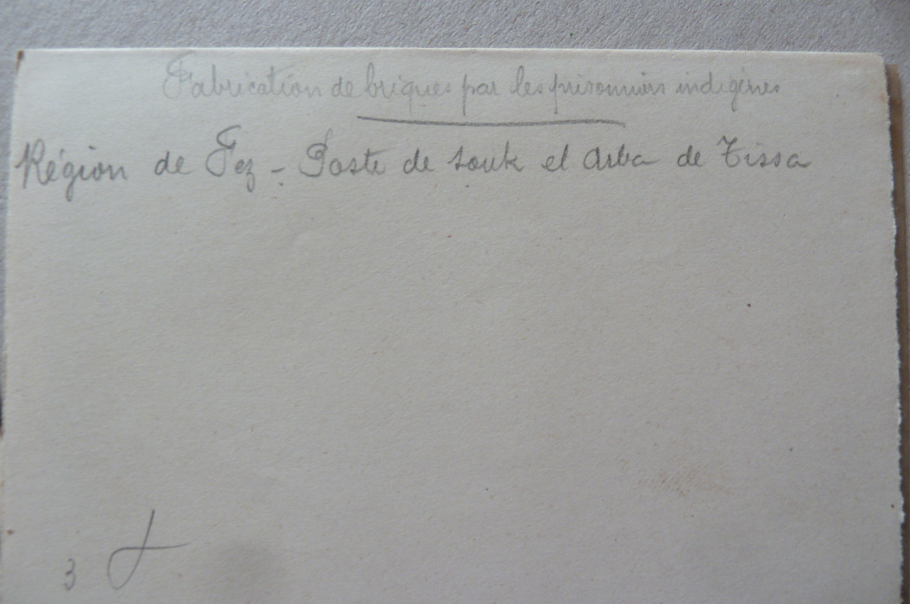 Fabrication de briques par les prisonniers indigènes
Région de Fez - Poste de Souk el Arba de Tissa
3